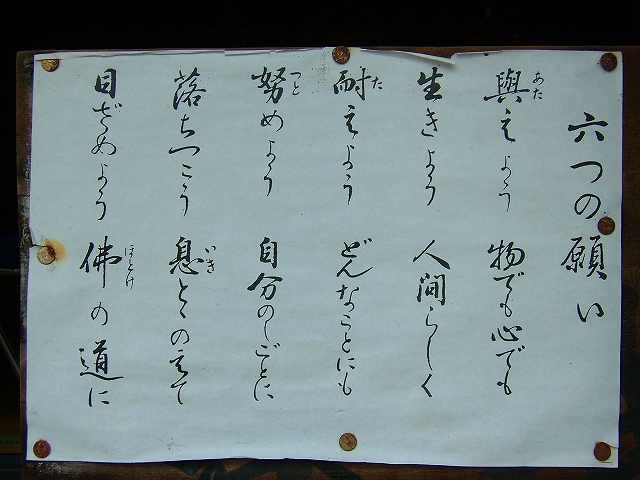 六つの願い
與えよう 物でも心でも
生きよう 人間らしく
耐えよう どんなことにも
努めよう 自分のしごとに
落ちつこう 息とゝのえて
目ざめよう 佛の道に